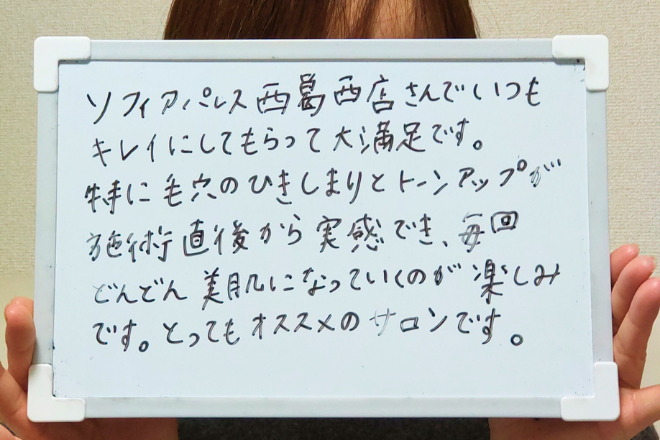 ソフィアパレス西葛西店さんでいつも
キレイにしてもらって大満足です。
特に毛穴のひきしまりとトーンアップが
施術直後から実感でき、毎回
どんどん美肌になっていくのが楽しみ
です。とってもオススメのサロンです。